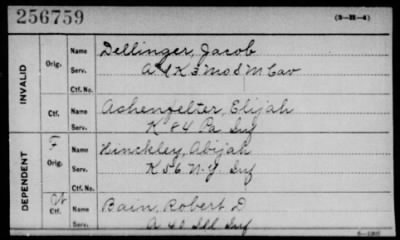 256759 (3-B-4)
INVALID
Orig. Name Dellinger, Jacob
Serv. A & K 3 Mo S M Cav
Ctf. No.
Ctf. Name Achenfelter, Elijah
Serv. K 84 Pa Inf
DEPENDENT
Orig. Name Hinckley, Abijah
Serv. K 56 N-Y Inf
Ctf. No.
Ctf. Name Bain, Robert D.
Serv. A 40 Ill Inf